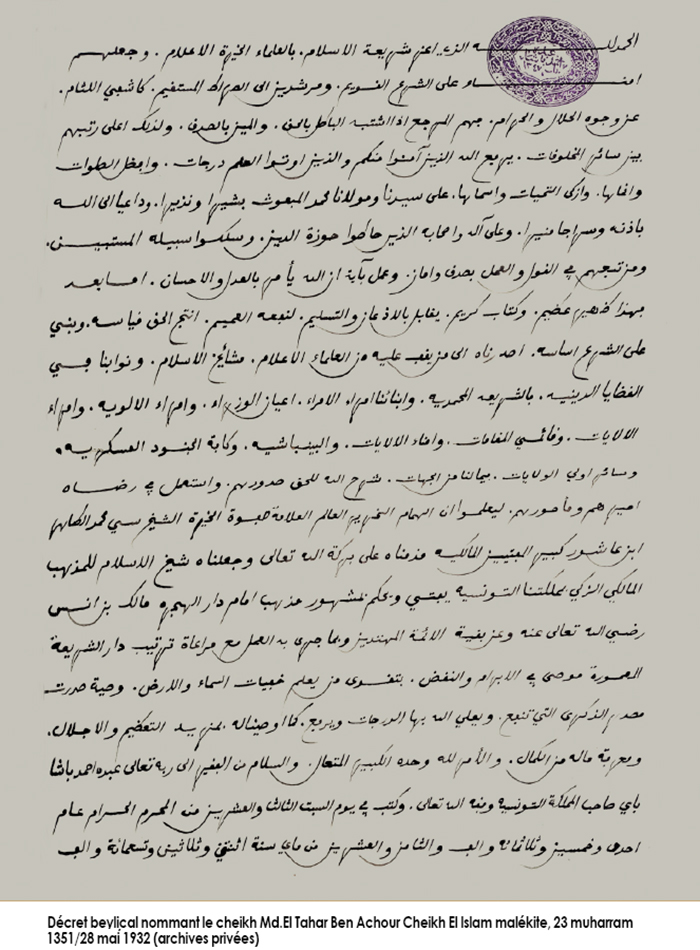 الحمد لله الذي اعز شريعة الاسلام. بالعلماء الخيرة الاعلام. وجعلهم
امناء على الشرع القويم. ومرشدين الى الصراط المستقيم. كاشفي اللثام.
عن وجوه الحلال والحرام. فهم المرجع اذا اشتبه الباطل بالحق. والمين بالصدق. ولذلك اعلى رتبهم
بين سائر المخلوقات. يرفع الله الذين آمنوا منكم والذين اوتوا العلم درجات. وافضل الصلوات
وانماها. وازكى التحيات واسماها. على سيدنا ومولانا محمد المبعوث بشيرا ونذيرا. وداعيا الى الله
باذنه وسراجا منيرا. وعلى آله واصحابه الذين حاطوا حوزة الدين. وسلكوا سبيله المستبين.
ومن تبعهم في القول والعمل بصدق وامان. وعمل بآية ان الله يأمر بالعدل والاحسان. اما بعد
فهذا ظهير عظيم. وكتاب كريم. يقابل بالاذعان والتسليم. لنفعه العميم. انتج الحق قياسه. وبني
على الشرع اساسه. اصدرناه الى من يقف عليه من العلماء الاعلام. مشائخ الاسلام. ونوابنا في
القضايا الدينيه. بالشريعه المحمديه. وابنائنا امراء الامراء. اعيان الوزراء. وامراء الالويه. وامراء
الالايات. وقائمي المقامات. وامناء الالايات. والبينباشيه. وكافة الجنود العسكريه.
وسائر اولي الولايات. بمالنا من الجهات. شرح الله للحق صدورهم. واستعمل في رضاه
اميرهم ومأمورهم. ليعلموا ان الهمام النحرير العالم العلامة صفوة الخيرة الشيخ سي محمد الطاهر
ابن عاشور كبير المفتيين المالكيه قدمناه على بركة الله تعالى وجعلناه شيخ الاسلام للمذهب
المالكي الزكي بمملكتنا التونسيه يفتي ويحكم بمشهور مذهب امام دار الهجره مالك بن انس
رضي الله تعالى عنه وعن بقية الائمة المهتدين وبما جرى به العمل مع مراعاة ترتيب دار الشريعة
المعمورة موصى في الابرام والنقض. بتقوى من يعلم خفيات السماء والارض. وصية صدرت
مصدر الذكرى التي تنفع. ويعلي الله بها الدرجات ويرفع. كما اوصيناله بمزيد التعظيم والاجلال.
ومعرفة ماله من الكمال. والأمر لله وحده الكبير المتعال. والسلام من الفقير الى ربه تعالى عبده احمد باشا
باي صاحب المملكة التونسية وفقه الله تعالى. وكتب في يوم السبت الثالث والعشرين من المحرم الحرام عام
احدى وخمسين وثلاثمائة والف والثامن والعشرين من ماي سنة اثنتين وثلاثين وتسعمائة والف
Décret beyliçal nommant le cheikh Md.El Tahar Ben Achour Cheikh El Islam malékite, 23 muharram
1351/28 mai 1932 (archives privées)